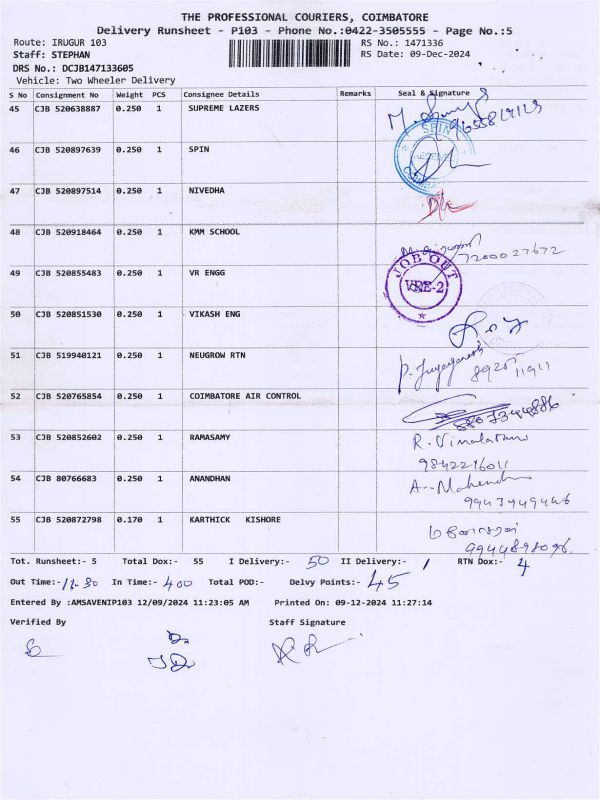 THE PROFESSIONAL COURIERS, COIMBATORE
Delivery Runsheet - P103 - Phone No.:0422-3505555 - Page No.:5
Route: IRUGUR 103
RS No.: 1471336
Staff: STEPHAN
RS Date: 09-Dec-2024
DRS No.: DCJB147133605
Vehicle: Two Wheeler Delivery
S No Consignment No Weight PCS Consignee Details Remarks Seal & Signature
45 CJB 520638887 0.250 1 SUPREME LAZERS
46 CJB 520897639 0.250 1 SPIN SPIN
47 CJB 520897514 0.250 1 NIVEDHA
48 CJB 520918464 0.250 1 KMM SCHOOL 7200027672
49 CJB 520855483 0.250 1 VR ENGG JOB OUT VRE-2
50 CJB 520851530 0.250 1 VIKASH ENG
51 CJB 519940121 0.250 1 NEUGROW RTN
52 CJB 520765854 0.250 1 COIMBATORE AIR CONTROL
53 CJB 520852602 0.250 1 RAMASAMY R. Vimalatha
9842216011
54 CJB 80766683 0.250 1 ANANDHAN
55 CJB 520872798 0.170 1 KARTHICK KISHORE
Tot. Runsheet:- 5 Total Dox:- 55 I Delivery:- 50 II Delivery:- / RTN Dox:- 4
Out Time:- 11.30 In Time:- 400 Total POD:- Delvy Points:- 45
Entered By :AMSAVENIP103 12/09/2024 11:23:05 AM Printed On: 09-12-2024 11:27:14
Verified By Staff Signature